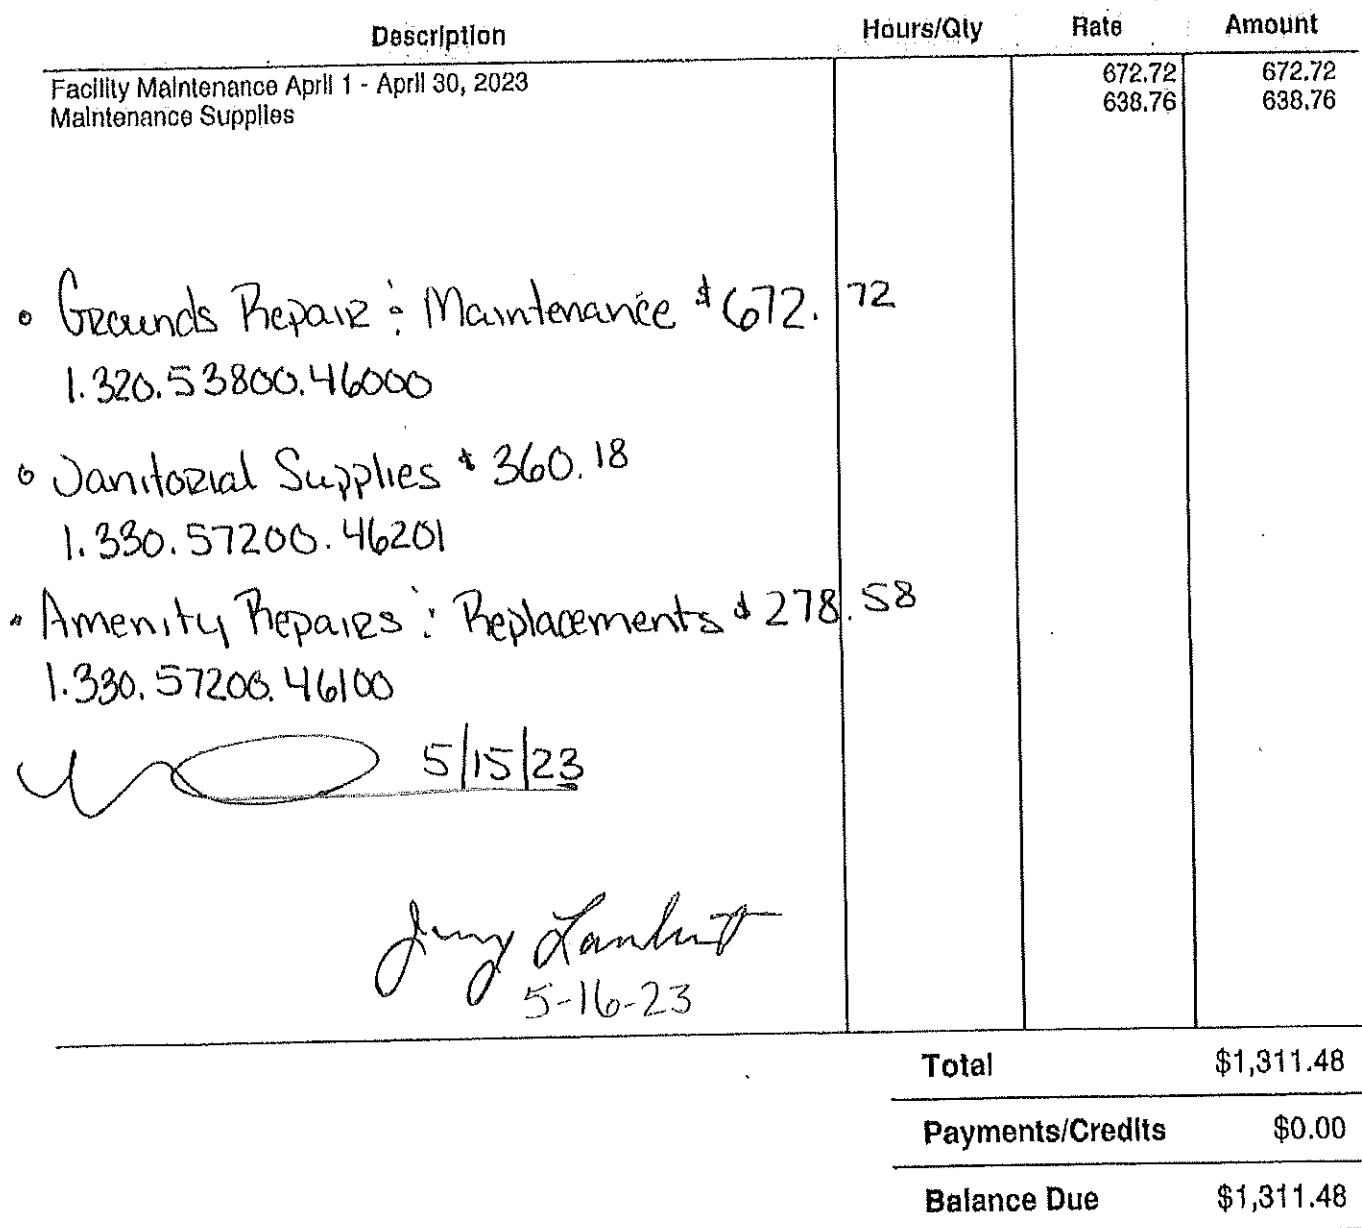 Description Hours/Qty Rate Amount
Facility Maintenance April 1 - April 30, 2023 672.72 672.72
Maintenance Supplies 638.76 638.76
Grounds Repair & Maintenance $672.72
1.320.53800.46000
Janitorial Supplies $360.18
1.330.57200.46201
Amenity Repairs & Replacements $278.58
1.330.57200.46100
5/15/23
Jerry Lambert
5-16-23
Total $1,311.48
Payments/Credits $0.00
Balance Due $1,311.48